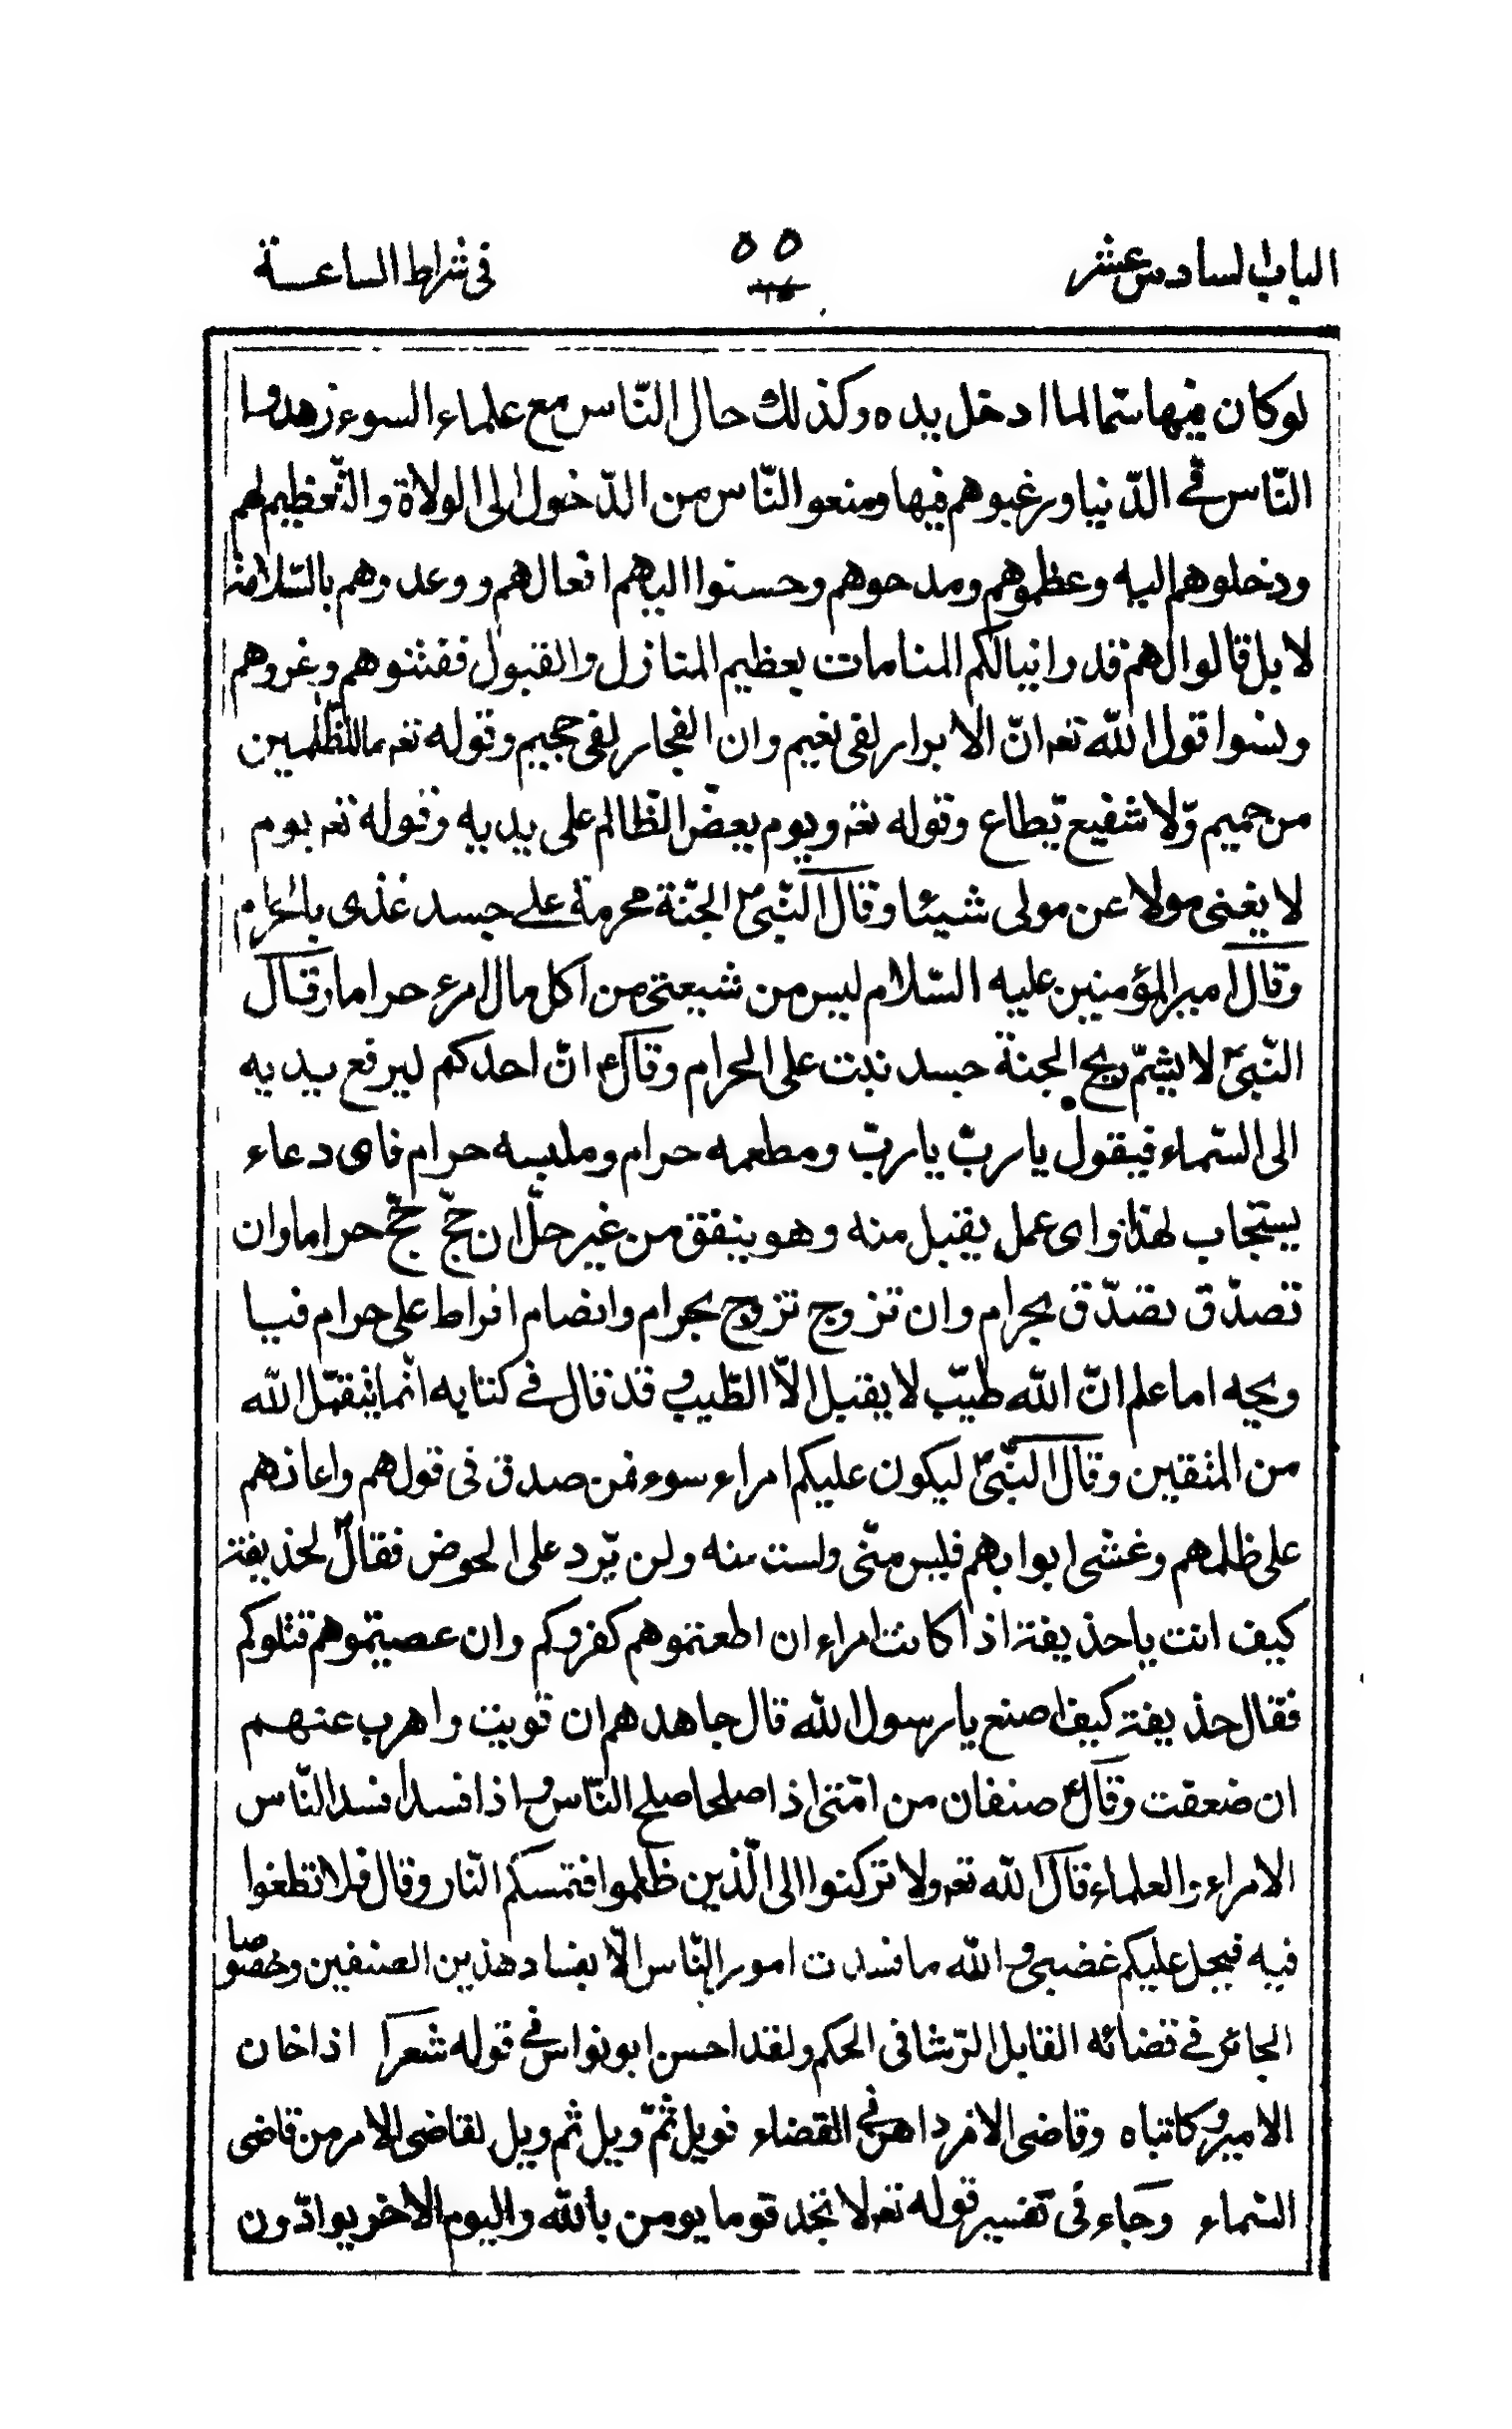 الباب السادس عشر ٥٥ فی شراط الساعة
لو کان فیها سما لما ادخل یده وکذلك حال النّاس مع علماء السوء زهدوا
النّاس فی الدّنیا ورغبوهم فیها ومنعوا النّاس من الدّخول الی الولاة والتّعظیم لهم
ودخلوهم الیه وعظموهم ومدحوهم وحسنوا الیهم افعالهم ووعدوهم بالسّلامة
لا بل قالوا لهم قد راینا لکم المنامات بعظیم المنازل والقبول ففتنوهم وغروهم
ونسوا قول الله تعه انّ الابرار لفی نعیم وان الفجار لفی جحیم وقوله تعه ما للظّلمین
من حمیم وّلا شفیع یّطاع وقوله تعه ویوم یعضّ الظّالم علی یدیه وقوله تعه یوم
لا یغنی مولا عن مولی شیئا وقال النّبیّ الجنّة محرمة علی جسد غذی بالحرام
وقال امیر المؤمنین علیه السّلام لیس من شیعتی من اکل مال امرء حراما وقال
النّبیّ لا یشمّ ریح الجنة جسد نبت علی الحرام وقال ع انّ احدکم لیرفع یدیه
الی السّماء فیقول یا ربّ یا ربّ ومطعمه حرام وملبسه حرام فای دعاء
یستجاب لهذا وای عمل یقبل منه وهو ینفق من غیر حلّ ان حجّ حجّ حراما وان
تصدّق تصدّق بحرام وان تزوج تزوج بحرام وان صام افراط علی حرام فیا
ویحه اما علم انّ الله طیّب لا یقبل الاّ الطّیب و قد قال فی کتابه انّما یتقبّل الله
من المتقین وقال النّبیّ لیکون علیکم امراء سوء فمن صدق فی قولهم واعانهم
علی ظلمهم وغشی ابوابهم فلیس منّی ولست منه ولن یّرد علی الحوض فقال لحذیفة
کیف انت یا حذیفة اذا کانت امراء ان اطعتموهم کفروکم وان عصیتموهم قتلوکم
فقال حذیفة کیف اصنع یا رسول الله قال جاهدهم ان قویت واهرب عنهم
ان ضعفت وقال ع صنفان من امّتی اذا صلحا صلح النّاس و اذا فسدا فسد النّاس
الامراء والعلماء قال الله تعه ولا ترکنوا الی الّذین ظلموا فتمسکم النّار وقال فلا تطغوا
فیه فیحل علیکم غضبی و الله ما فسدت امور النّاس الاّ بفساد هذین الصنفین وخصوصا
الجائر فی قضائه القابل الرّشا فی الحکم ولقد احسن ابو نواس فی قوله شعرا اذا خان
الامیر و کاتباه وقاضی الامر داهن فی القضاء فویل ثمّ ویل ثم ویل لقاضی الامر من قاضی
السّماء وجاء فی تفسیر قوله تعه لا تجد قوما یومن بالله والیوم الاخر یوادّون